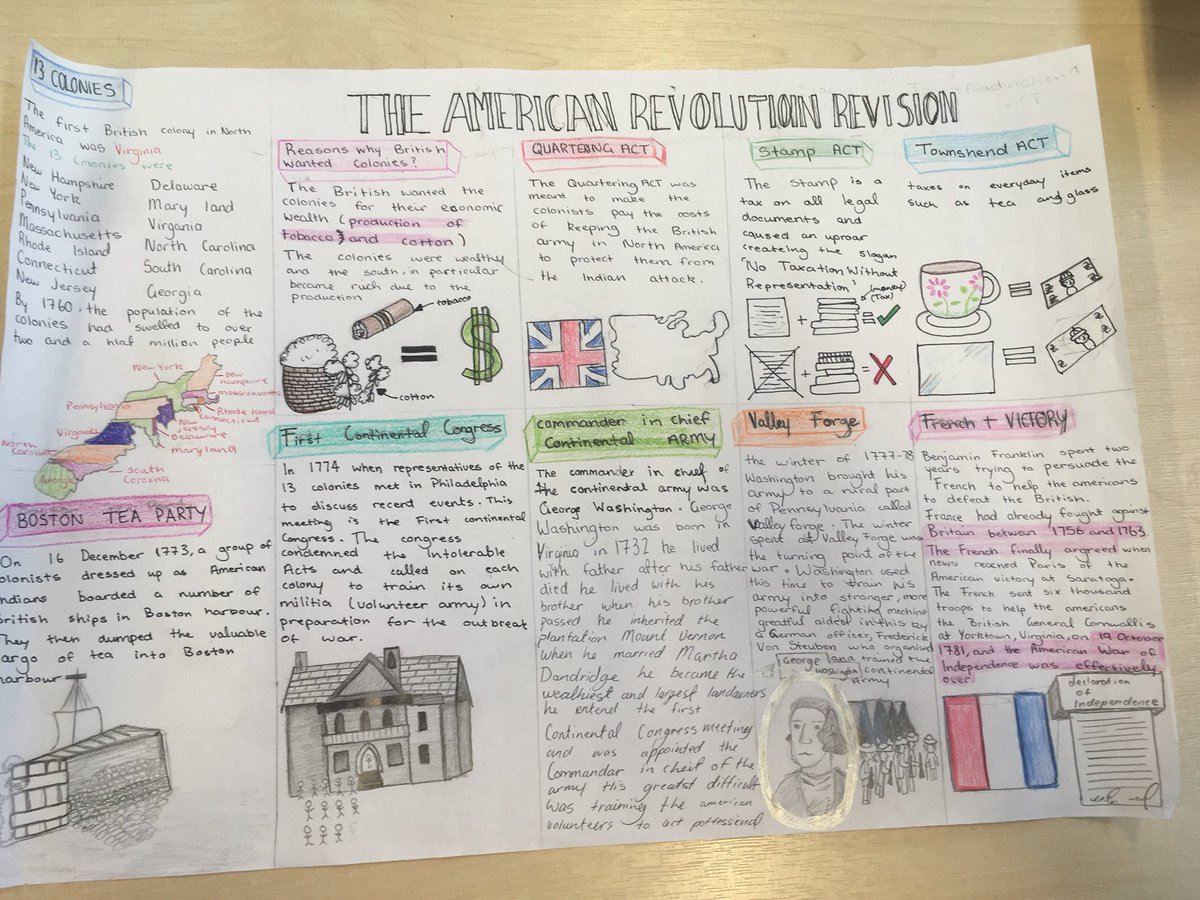 THE AMERICAN REVOLUTION REVISION
13 COLONIES
The first British colony in North
America was Virginia
The 13 Colonies were
New Hampshire Delaware
New York Mary land
Pennsylvania Virgania
Massachusetts North Carolina
Rhode Island South Carolina
Connecticut Georgia
New Jersey
By 1760, the population of the
colonies had swelled to over
two and a hlaf million people
New York
new hampshire
massachusetts
Pennsylvania
Rhode Island
Connecticut
New Jersey
Delaware
maryland
Virginia
North Carolina
South Carolina
Georgia
Reasons why British
wanted Colonies?
The British wanted the
colonies for their economic
wealth (production of
tobacco and cotton)
The colonies were wealthy
and the south, in particular
became ruch due to the
production
tobacco
= $
cotton
QUARTERING ACT
The Quartering ACT was
meant to make the
colonists pay the costs
of keeping the British
army in North America
to protect them from
the Indian attack.
Stamp ACT
The stamp is a
tax on all legal
documents and
caused an uproar
createing the slagan
'No Taxation Without
Representation'
(money)
(Tax)
+ = ✓
+ = X
Townshend ACT
taxes on everyday items
such as tea and glass
=
=
BOSTON TEA PARTY
On 16 December 1773, a group of
colonists dressed up as American
Indians boarded a number of
British ships in Boston harbour.
They then dumped the valuable
cargo of tea into Boston
harbour
First Continental Congress
In 1774 when representatives of the
13 colonies met in Philadelphia
to discuss recent events. This
meeting is the First continental
Congress. The congress
condemned the Intolerable
Acts and called on each
colony to train its own
militia (volunteer army) in
preparation for the outbreak
of war.
commander in chief
Continental ARMY
The commander in chief of
the continental army was
George Washington. George
Washington was born in
Virginia in 1732 he lived
with father after his father
died he lived with his
brother when his brother
passed he inherited the
plantation Mount Vernon
when he married Martha
Dandridge he became the
wealhiest and largest landowners
he entend the first
Continental Congress meeting
and was appointed the
Commandar in cheif of the
army His greatst difficult
was training the american
volunteers to act pottessional
Valley Forge
the winter of 1777-78
Washington brought his
army to a rural part
of Pennsylvania called
Valley forge. The winter
spent at Valley Forge was
the turning point of the
war. Washington used
this time to train his
army into stronger, more
powerful fighting machine
greatful aided in this by
a German officer, Frederick
Von Steuben who organised
and trained the
continental
Army
George
Washington
French + VICTORY
Benjamin Franklin spent two
years trying to persuade the
French to help the americans
to defeat the British.
France had already fought against
Britain between 1756 and 1763.
The French finally argreed when
news reached Paris of the
American victory at Saratoga.
The French sent six thousand
troops to help the americans
the British General Cornwallis
at Yorktown, Virginia, on 19 October
1781, and the American War of
Independence was effectively
over.
declaration
of Independence